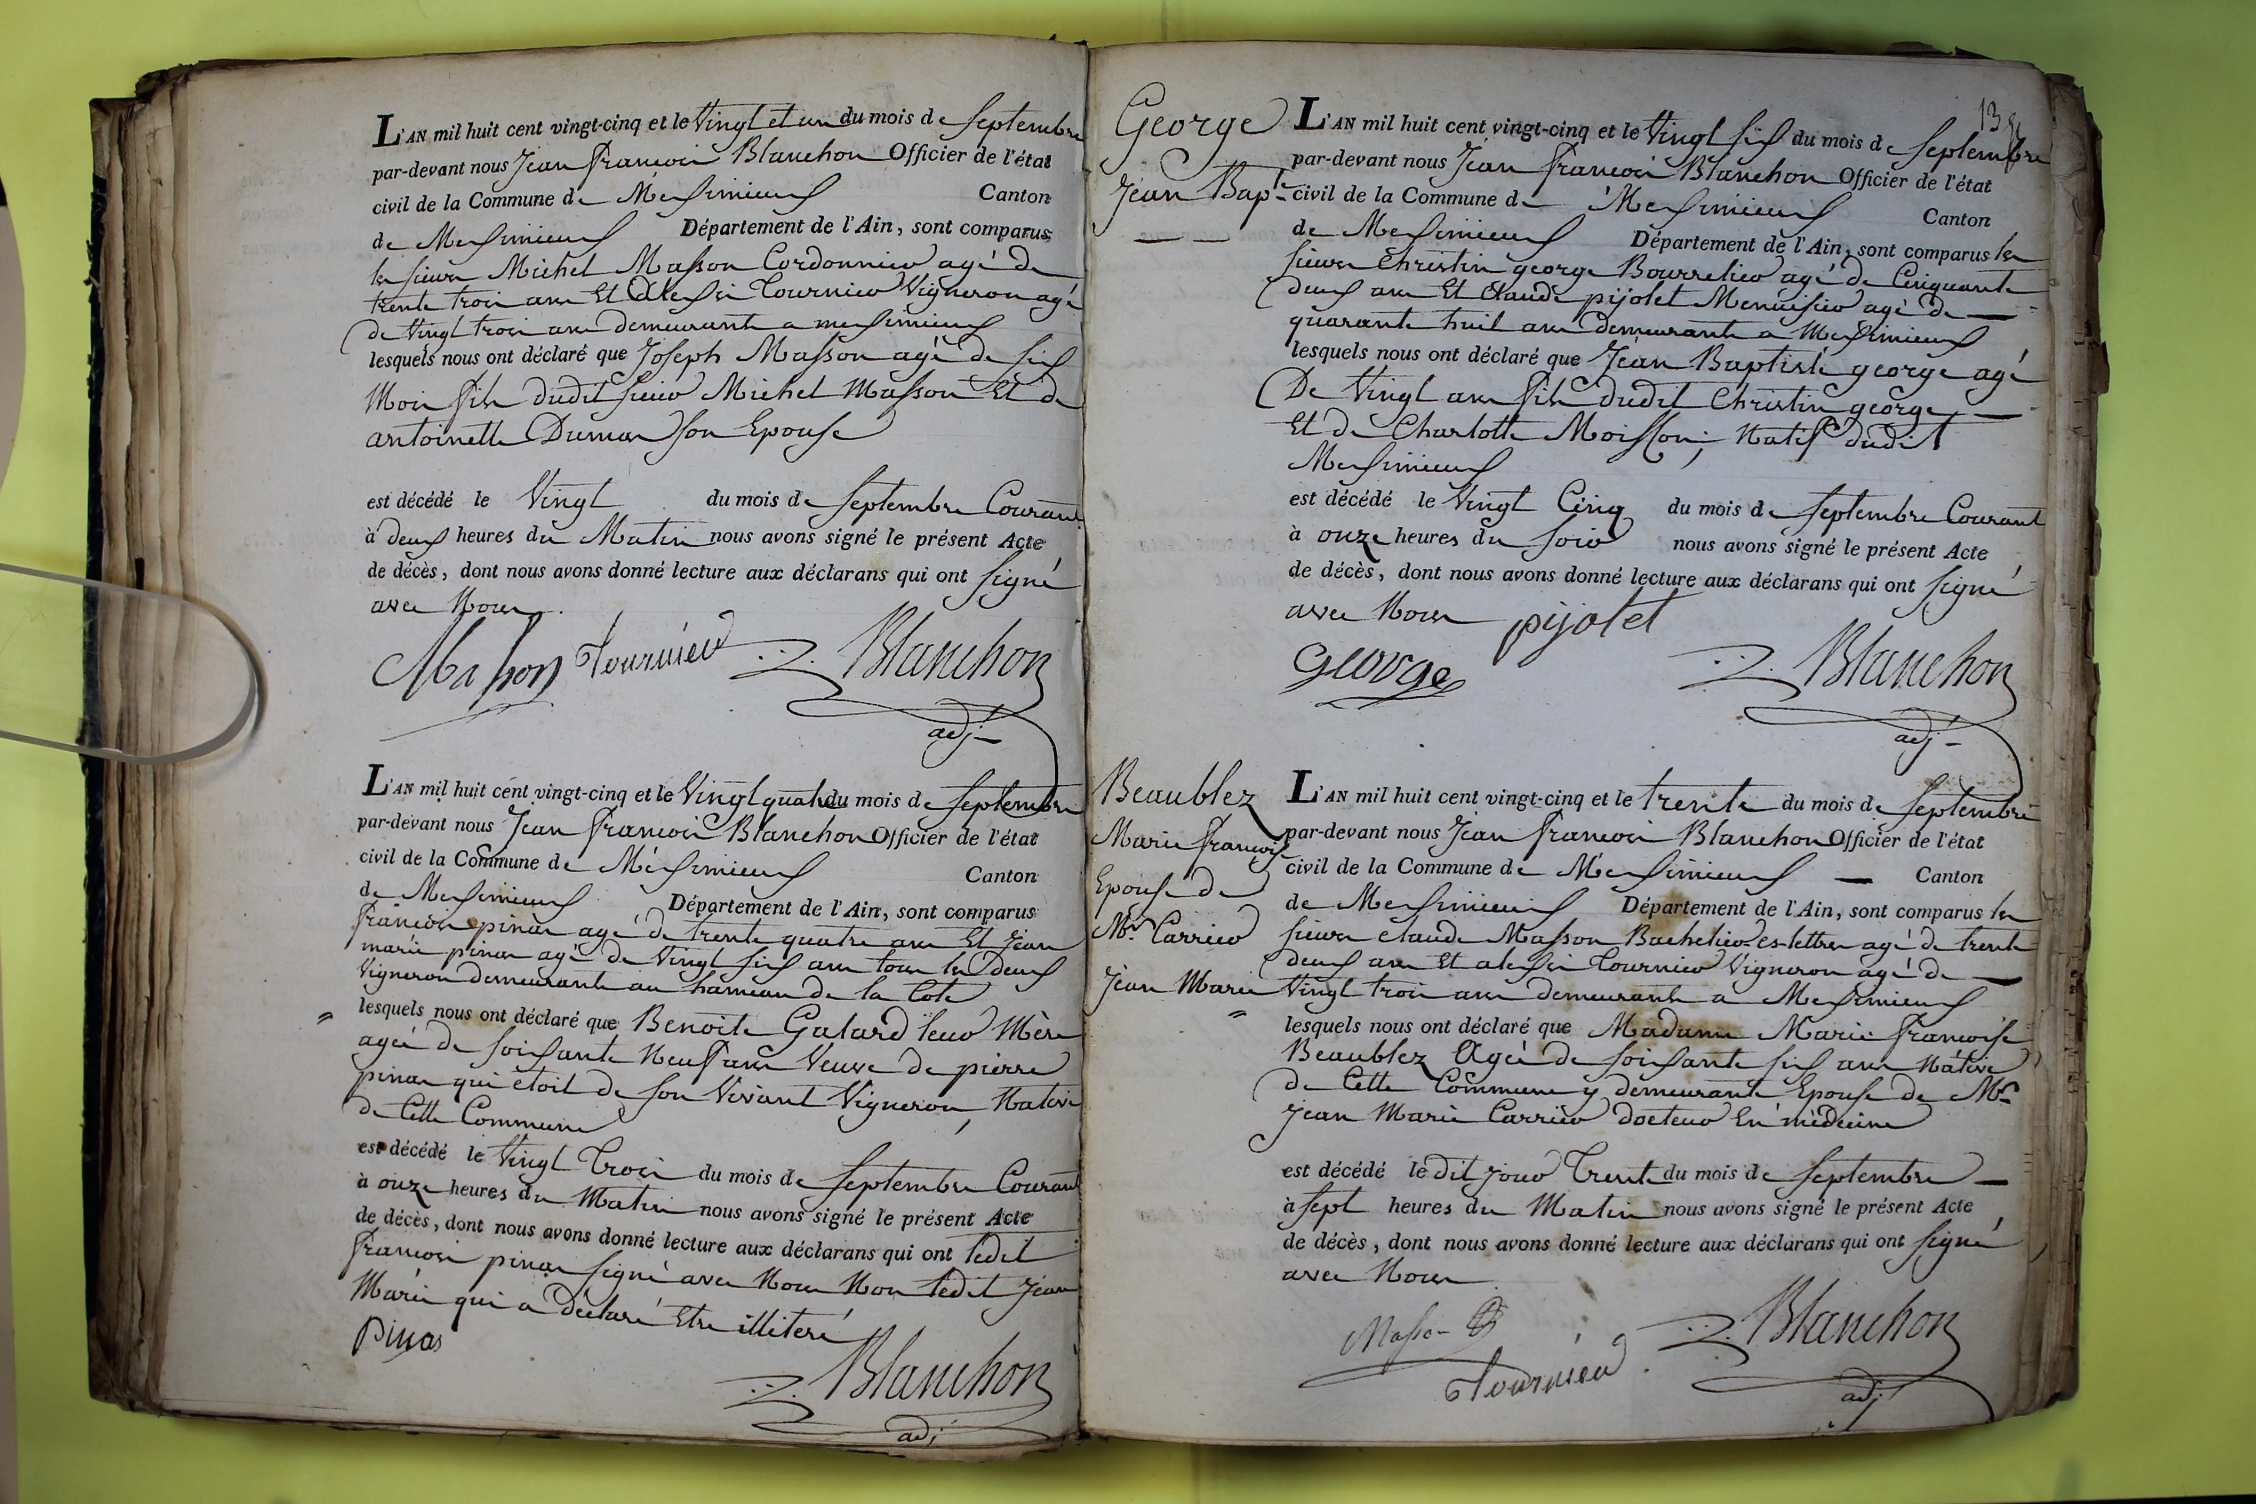 L'AN mil huit cent vingt-cinq et le Vingt et un du mois de Septembre
par-devant nous Jean françois Blanchon Officier de l'état
civil de la Commune de Meximieux Canton
de Meximieux Département de l'Ain, sont comparus
les sieurs Michel Masson Cordonnier agé de
trente trois ans Et alexis Tournier Vigneron agé
de Vingt trois ans demeurants a meximieux
lesquels nous ont déclaré que Joseph Masson agé de six
Mois fils dudit sieur Michel Masson Et de
antoinette Dumas son Epouse
est décédé le Vingt du mois de Septembre Courant
à deux heures du Matin nous avons signé le présent Acte
de décès, dont nous avons donné lecture aux déclarans qui ont signé
avec Nous.
Masson Tournier Blanchon
adj
L'AN mil huit cent vingt-cinq et le Vingt quatre du mois de Septembre
par-devant nous Jean françois Blanchon Officier de l'état
civil de la Commune de Méximieux Canton
de Meximieux Département de l'Ain, sont comparus
françois pinas agé de trente quatre ans Et Jean
marie pinas agé de Vingt six ans tous les deux
Vigneron demeurants au hameau de la Cote
lesquels nous ont déclaré que Benoite Galard leur Mère
agée de soixante Neuf ans Veuve de pierre
pinas qui étoit de son Vivant Vigneron, Native
de Cette Commune
est décédé le Vingt Trois du mois de Septembre Courant
à onze heures du Matin nous avons signé le présent Acte
de décès, dont nous avons donné lecture aux déclarans qui ont ledit
françois pinas signé avec Nous Non ledit Jean
Marie qui a déclaré Etre illiteré
Pinas
Blanchon
adj
13
George
Jean Bapt
L'AN mil huit cent vingt-cinq et le Vingt six du mois de Septembre
par-devant nous Jean françois Blanchon Officier de l'état
civil de la Commune de Meximieux Canton
de Meximieux Département de l'Ain, sont comparus les
sieurs Christin george Bourrelier agé de Cinquante
deux ans Et Claude pijolet Menuisier agé de
quarante huit ans demeurants a Meximieux
lesquels nous ont déclaré que Jean Baptiste george agé
De Vingt ans fils dudit Christin george
Et de Charlotte Moisson, Natif dudit
Meximieux
est décédé le Vingt Cinq du mois de Septembre Courant
à onze heures du soir nous avons signé le présent Acte
de décès, dont nous avons donné lecture aux déclarans qui ont signé
avec Nous pijolet
George Blanchon
adj
Beaublez
Marie françoise
Epouse de
Mr. Carrier
Jean Marie
L'AN mil huit cent vingt-cinq et le trente du mois de Septembre
par-devant nous Jean françois Blanchon Officier de l'état
civil de la Commune de Meximieux Canton
de Meximieux Département de l'Ain, sont comparus les
sieurs claude Masson Bachelier-es-lettres agé de trente
deux ans Et alexis Tournier Vigneron agé de
Vingt trois ans demeurants a Meximieux
lesquels nous ont déclaré que Madame Marie françoise
Beaublez Agée de soixante six ans Native
de Cette Commune y demeurante Epouse de Mr.
Jean Marie Carrier docteur En médecine
est décédé le dit jour Trente du mois de Septembre
à sept heures du Matin nous avons signé le présent Acte
de décès, dont nous avons donné lecture aux déclarans qui ont signé
avec Nous
Masson Blanchon
Tournier adj